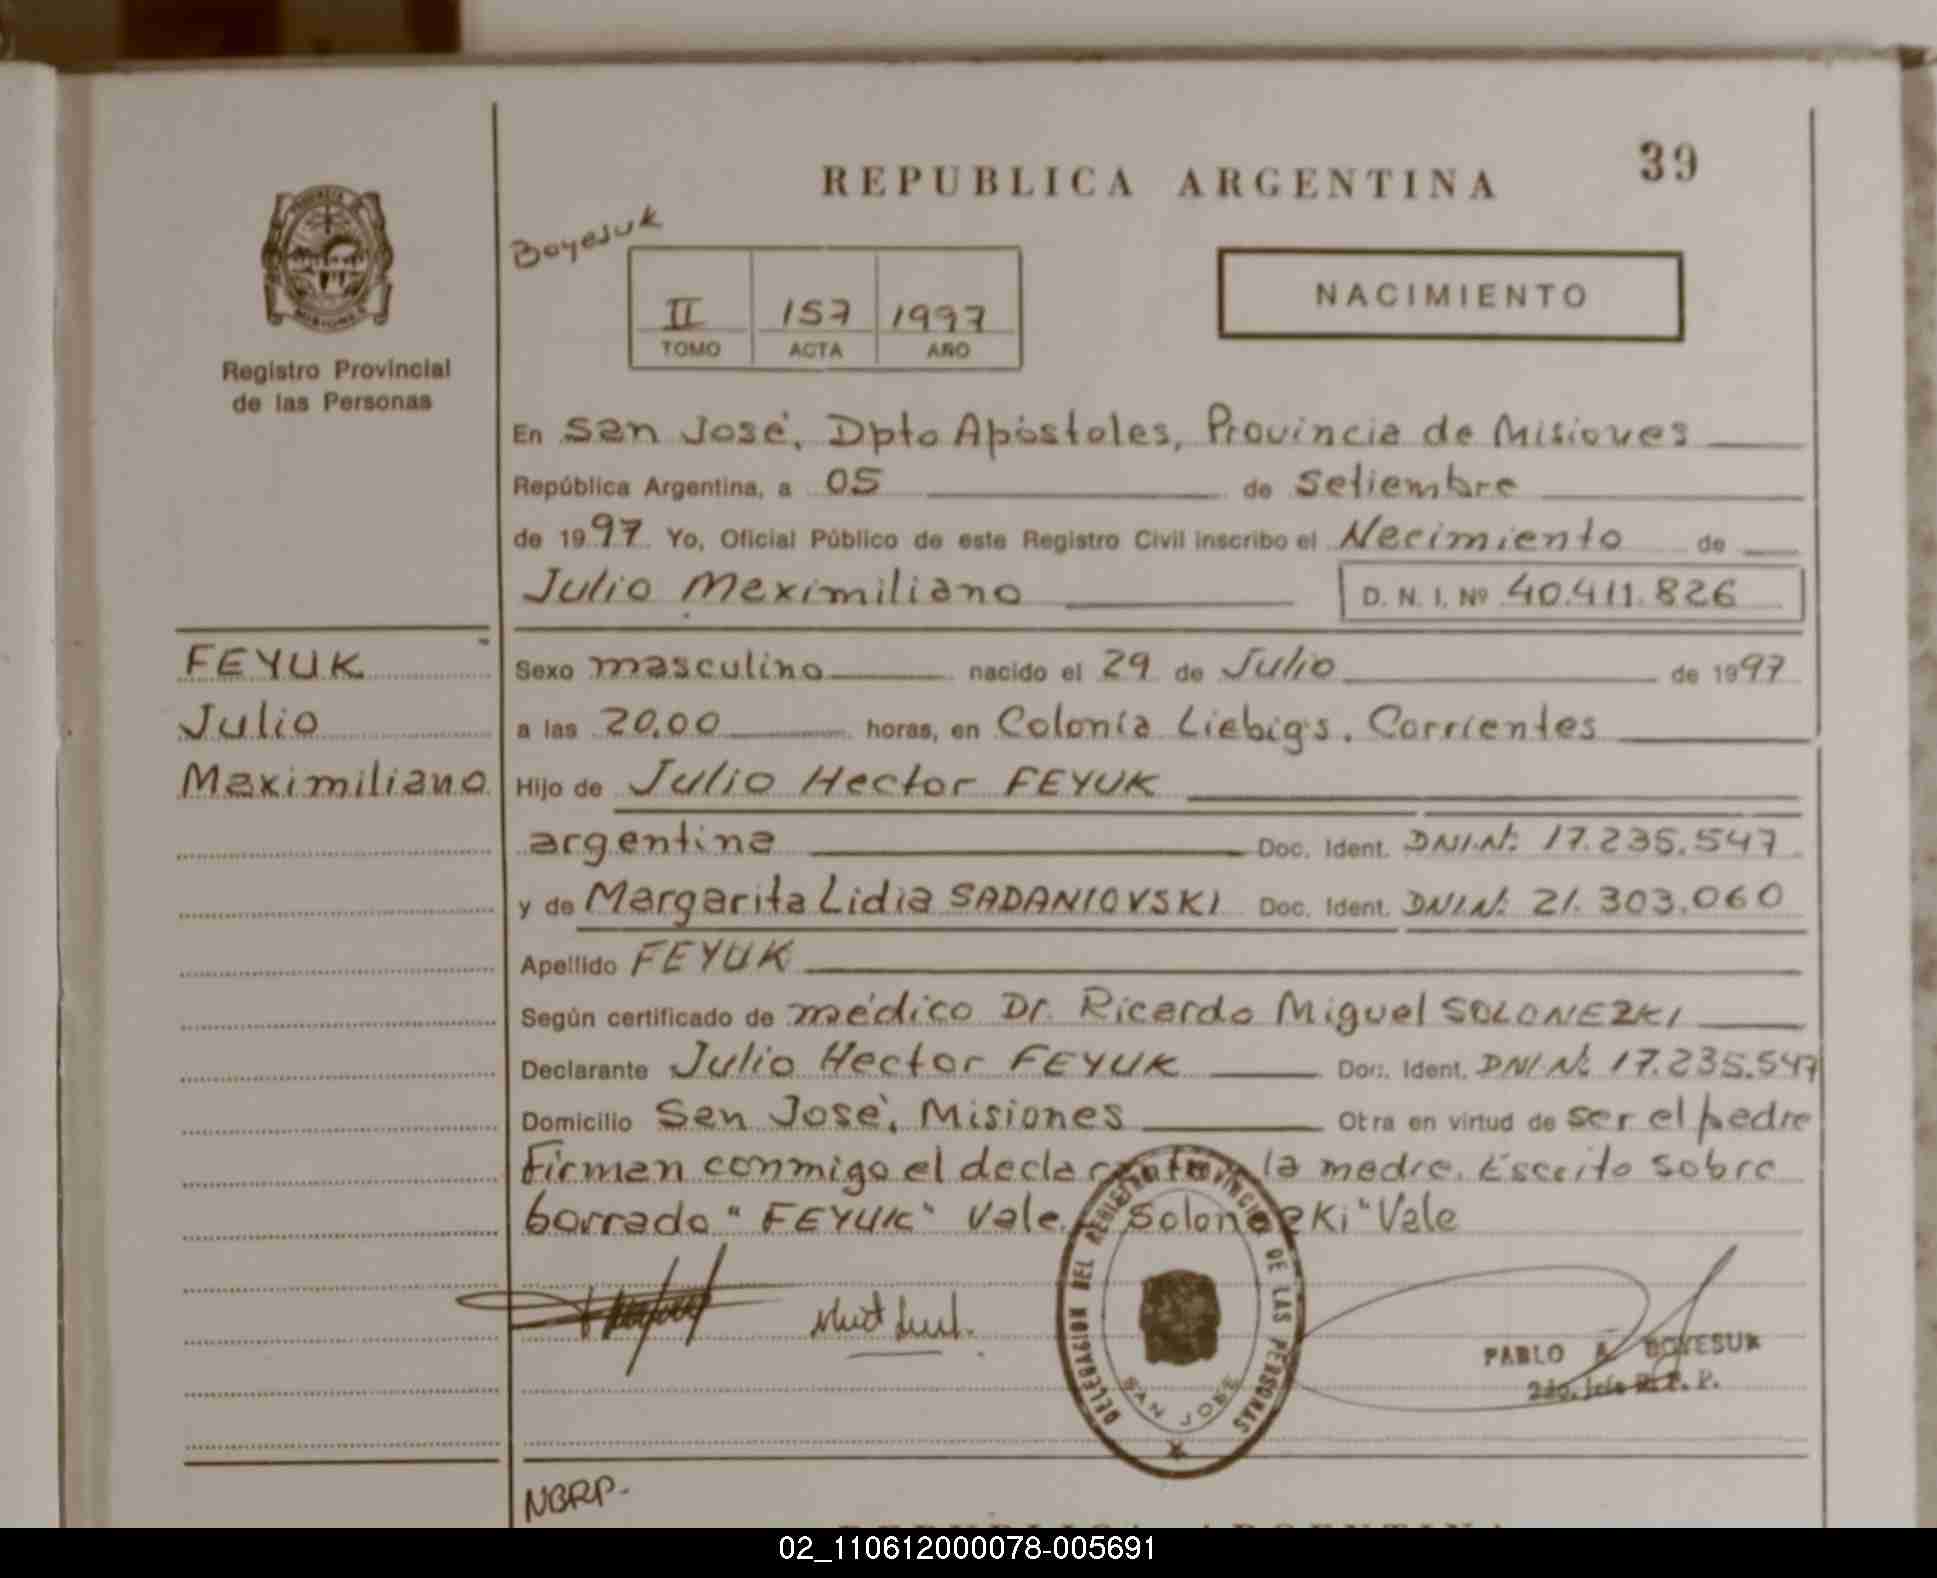 39
REPUBLICA ARGENTINA
Boyesuk
NACIMIENTO
II 157 1997
TOMO ACTA AÑO
MISIONES
Registro Provincial
de las Personas
En San José, Dpto Apóstoles, Provincia de Misiones
República Argentina, a 05 de Setiembre
de 1997 Yo, Oficial Público de este Registro Civil inscribo el Nacimiento de
Julio Maximiliano D. N. I. Nº 40.411.826
FEYUK
Julio
Maximiliano
Sexo masculino nacido el 29 de Julio de 1997
a las 20,00 horas, en Colonia Liebigs, Corrientes
Hijo de Julio Hector FEYUK
argentina Doc. Ident. DNI.Nº: 17.235.547
y de Margarita Lidia SADANIOVSKI Doc. Ident. DNI.Nº: 21.303.060
Apellido FEYUK
Según certificado de médico Dr. Ricardo Miguel SOLONEZKI
Declarante Julio Hector FEYUK Doc. Ident. DNI Nº: 17.235.547
Domicilio San José, Misiones Otra en virtud de ser el padre
Firman conmigo el declarante la madre. Escrito sobre
borrado "FEYUK" Vale. Solonezki" Vale
DELEGACION DEL REGISTRO PROVINCIAL DE LAS PERSONAS
SAN JOSE
PABLO A. BOYESUK
2do. Jefe R. P. P.
NBRP.
REPUBLICA ARGENTINA
02_110612000078-005691